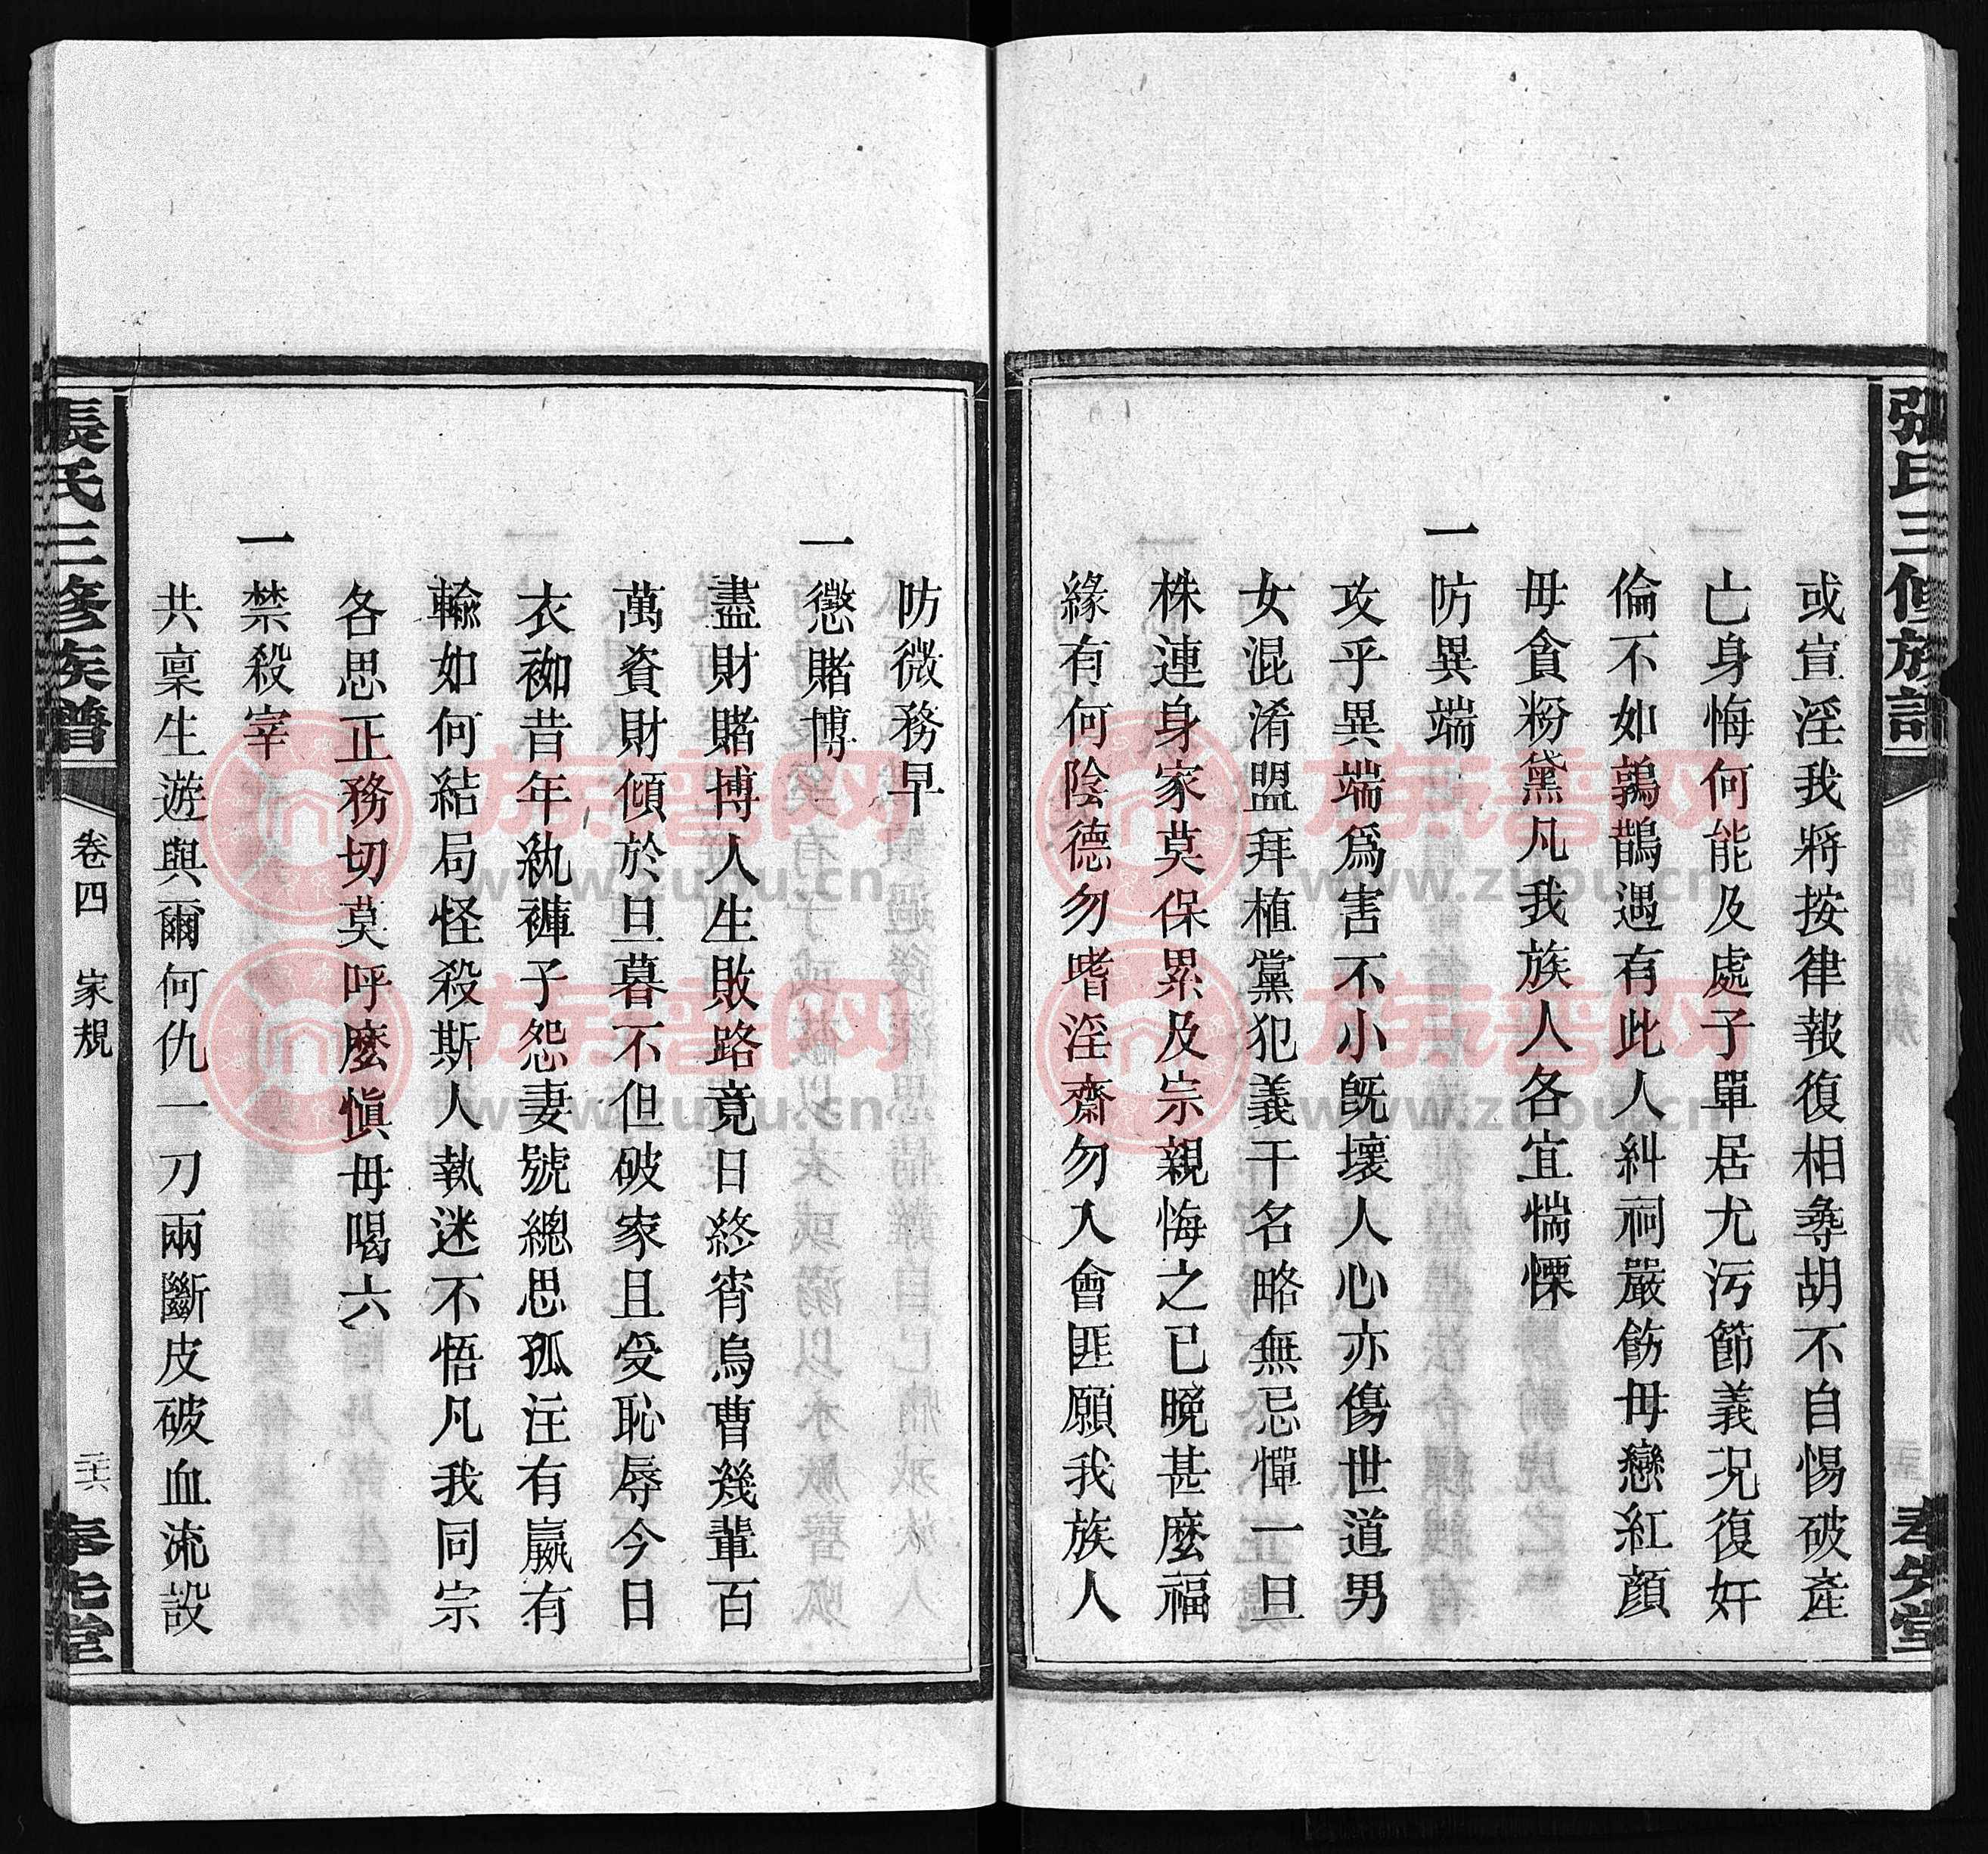 張氏三修族譜
奉先堂
或宣淫我將按律報復相尋胡不自惕破產
亡身悔何能及處子單居尤污節義況復奸
倫不如鶉鵲遇有此人糾祠嚴飭毋戀紅顏
毋貪粉黛凡我族人各宜惴慄
一防異端
攻乎異端爲害不小旣壞人心亦傷世道男
女混淆盟拜植黨犯義干名略無忌憚一旦
株連身家莫保累及宗親悔之已晚甚麽福
緣有何陰德勿嗜淫齋勿入會匪願我族人
防微務早
一懲賭博
盡財賭博人生敗路竟日終宵烏曹幾輩百
萬資財傾於旦暮不但破家且受恥辱今日
衣袽昔年紈褲子怨妻號總思孤注有贏有
輸如何結局怪殺斯人執迷不悟凡我同宗
各思正務切莫呼麽愼毋喝六
一禁殺宰
共稟生遊與爾何仇一刀兩斷皮破血流設
張氏三修族譜
卷四 家規
二十六
奉先堂
族譜网
www.zupu.cn
族譜网
www.zupu.cn
族譜网
www.zupu.cn
族譜网
www.zupu.cn